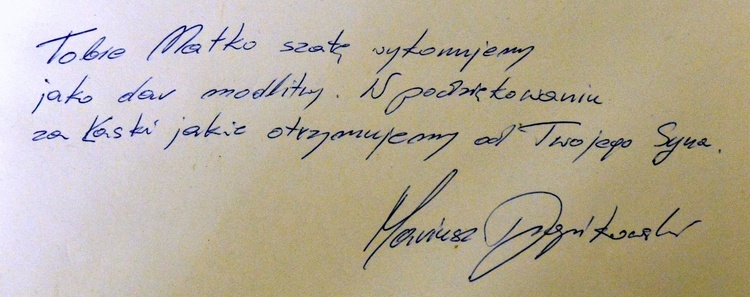 Tobie Matko szatę wykonujemy
jako dar modlitwy. W podziękowaniu
za łaski jakie otrzymujemy od Twojego Syna.
Mariusz Drapikowski